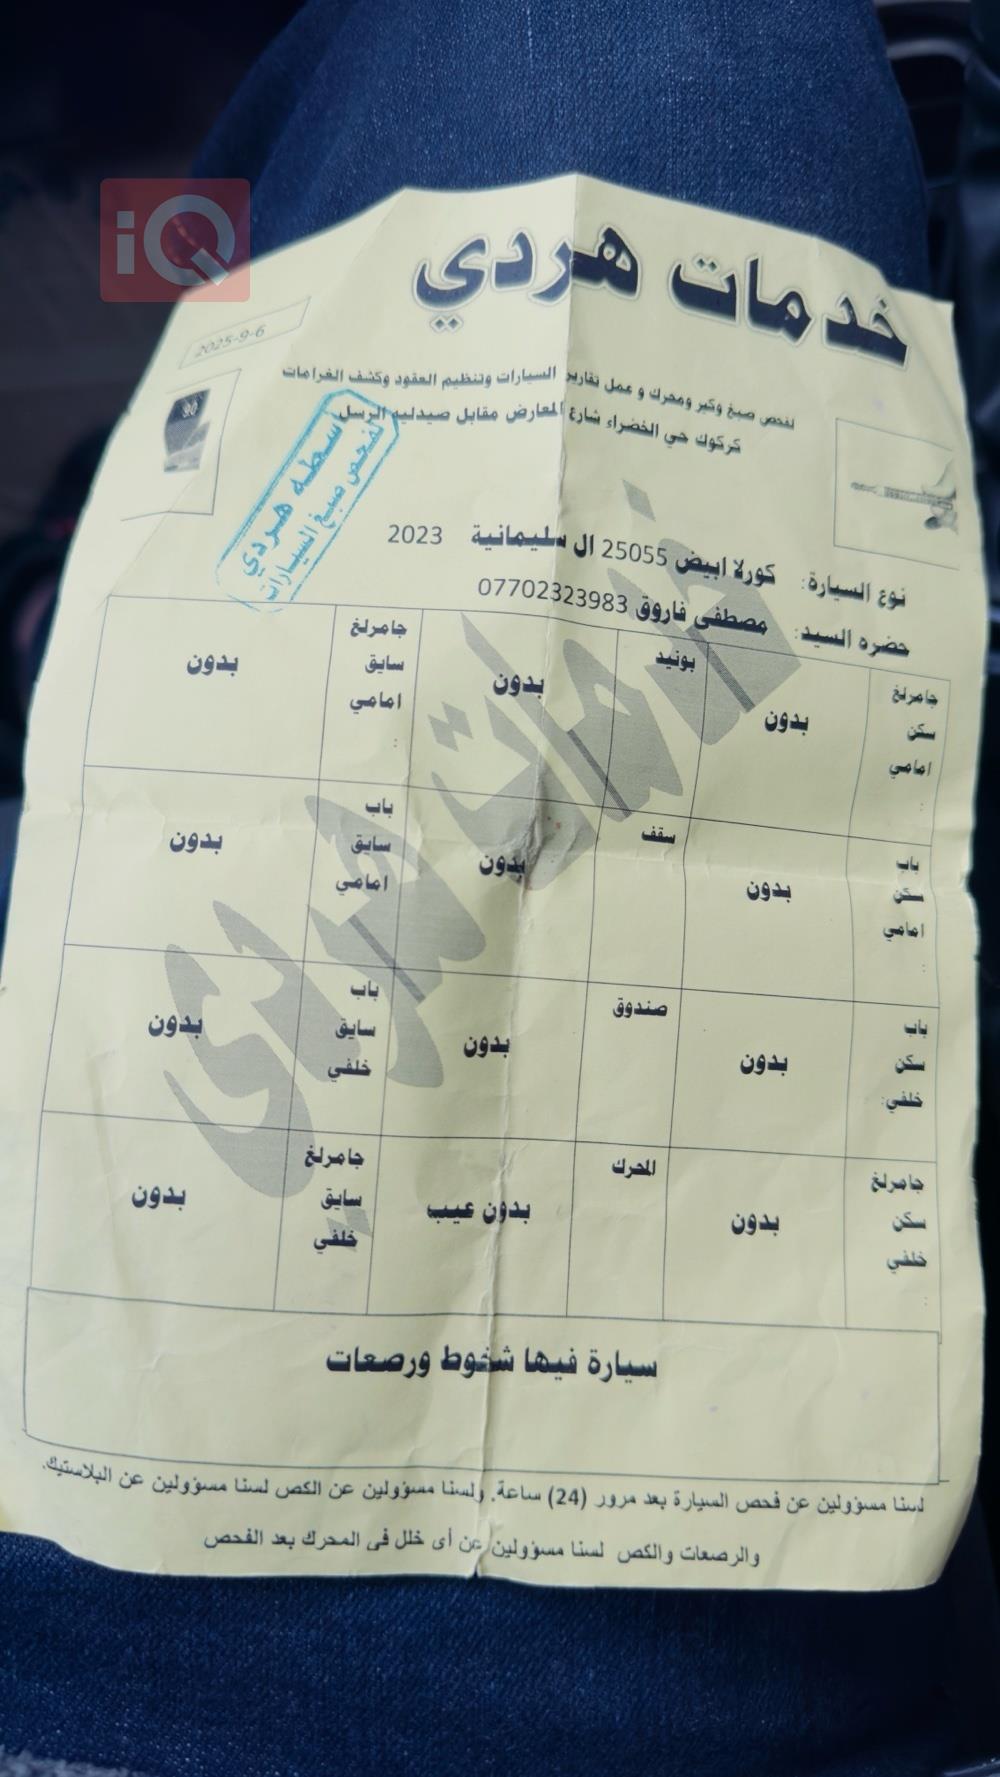 iQ
خدمات هردي
2025-9-6
لفحص صبغ وكير ومحرك و عمل تقارير السيارات وتنظيم العقود وكشف الغرامات
كركوك حي الخضراء شارع المعارض مقابل صيدليه الرسل
هردي
لفحص صبغ السيارات
نوع السيارة: كورلا ابيض 25055 ال سليمانية 2023
حضره السيد: مصطفى فاروق 07702323983
جامرلغ سكن امامي : بدون بونيد بدون جامرلغ سايق امامي : بدون
باب سكن امامي : بدون سقف بدون باب سايق امامي بدون
باب سكن خلفي: بدون صندوق بدون باب سايق خلفي بدون
جامرلغ سكن خلفي : بدون المحرك بدون عيب جامرلغ سايق خلفي بدون
سيارة فيها شخوط ورصعات
لسنا مسؤولين عن فحص السيارة بعد مرور (24) ساعة. ولسنا مسؤولين عن الكص لسنا مسؤولين عن البلاستيك.
والرصعات والكص لسنا مسؤولين عن أى خلل فى المحرك بعد الفحص
خدمات هردي